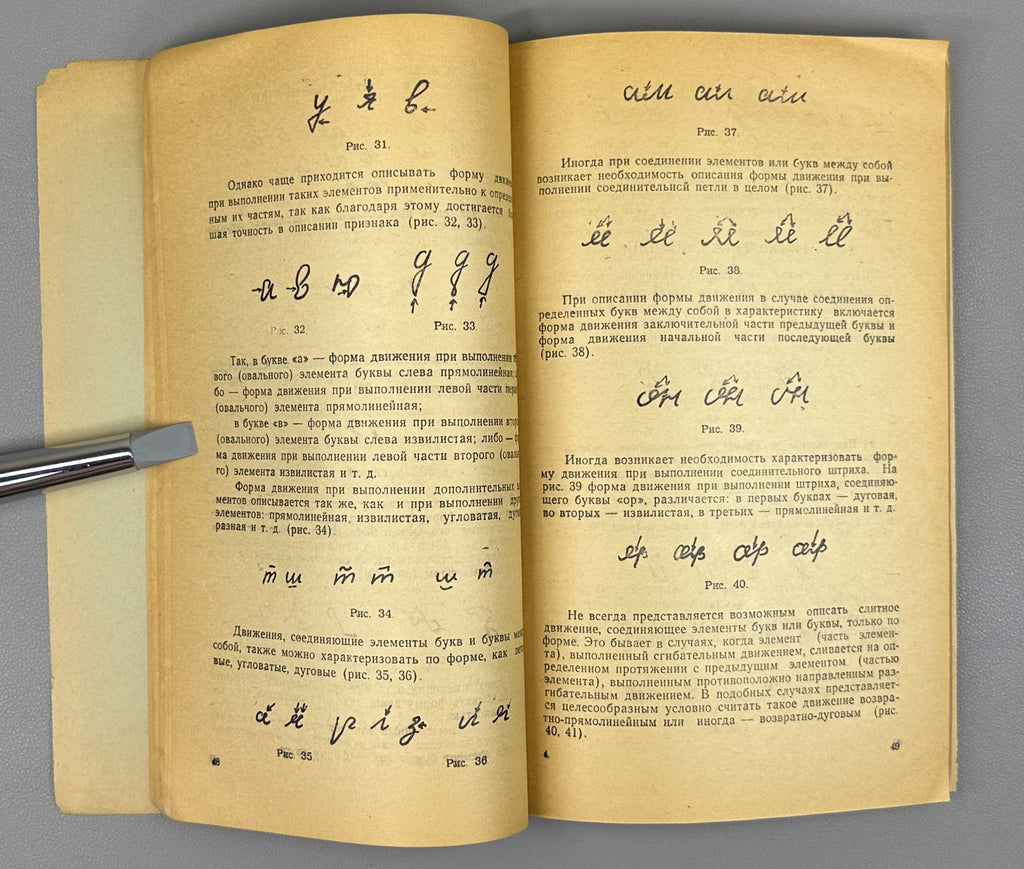 у я в
Рис. 31.
Однако чаще приходится описывать форму
при выполнении таких элементов применительно к
ным их частям, так как благодаря этому достигается
шая точность в описании признака (рис. 32, 33).
а в
Рис. 32
д д д
Рис. 33.
Так, в букве «а» — форма движения при выполнении
вого (овального) элемента буквы слева прямолинейная;
бо — форма движения при выполнении левой части
(овального) элемента прямолинейная;
в букве «в» — форма движения при выполнении
(овального) элемента буквы слева извилистая; либо —
ма движения при выполнении левой части второго
го) элемента извилистая и т. д.
Форма движения при выполнении дополнительных
ментов описывается так же, как и при выполнении
элементов: прямолинейная, извилистая, угловатая,
разная и т. д. (рис. 34).
т ш т т ш т
Рис. 34.
Движения, соединяющие элементы букв и буквы
собой, также можно характеризовать по форме, как
вые, угловатые, дуговые (рис. 35, 36).
Рис. 35.
Рис. 36.
48
Рис. 37.
Иногда при соединении элементов или букв между собой
возникает необходимость описания формы движения при вы-
полнении соединительной петли в целом (рис. 37).
Рис. 38.
При описании формы движения в случае соединения оп-
ределенных букв между собой в характеристику включается
форма движения заключительной части предыдущей буквы и
форма движения начальной части последующей буквы
(рис. 38).
Рис. 39.
Иногда возникает необходимость характеризовать фор-
му движения при выполнении соединительного штриха. На
рис. 39 форма движения при выполнении штриха, соединяю-
щего буквы «ор», различается: в первых буквах — дуговая,
во вторых — извилистая, в третьих — прямолинейная и т. д.
Рис. 40.
Не всегда представляется возможным описать слитное
движение, соединяющее элементы букв или буквы, только по
форме. Это бывает в случаях, когда элемент (часть элемен-
та), выполненный сгибательным движением, сливается на оп-
ределенном протяжении с предыдущим элементом (частью
элемента), выполненным противоположно направленным раз-
гибательным движением. В подобных случаях представляет-
ся целесообразным условно считать такое движение возвра-
тно-прямолинейным или иногда — возвратно-дуговым (рис.
40, 41).
4.
49